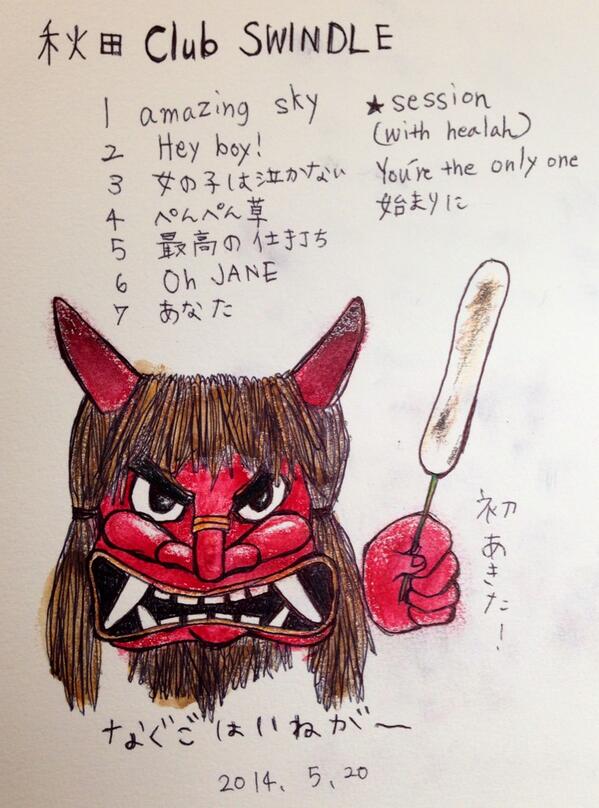 秋田 Club SWINDLE
1 amazing sky
2 Hey boy!
3 女の子は泣かない
4 ぺんぺん草
5 最高の仕打ち
6 Oh JANE
7 あなた
★session
(with healah)
You're the only one
始まりに
初あきた!
なぐごはいねが〜
2014. 5. 20